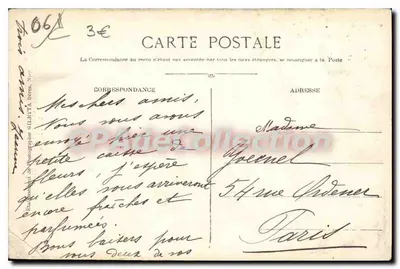 06
3€
CARTE POSTALE
La Correspondance au recto n'étant pas acceptée par tous les pays étrangers, se renseigner à la Poste
CORRESPONDANCE
ADRESSE
Mes chers amis,
Nous vous avons
hier une
petite caisse de
fleurs j'espère
qu'elles vous arriveront
encore fraîches et
parfumées.
Bons baisers pour
vous deux de vos
trois amis.
Madame
54 rue Ordener
Paris
GILETTA